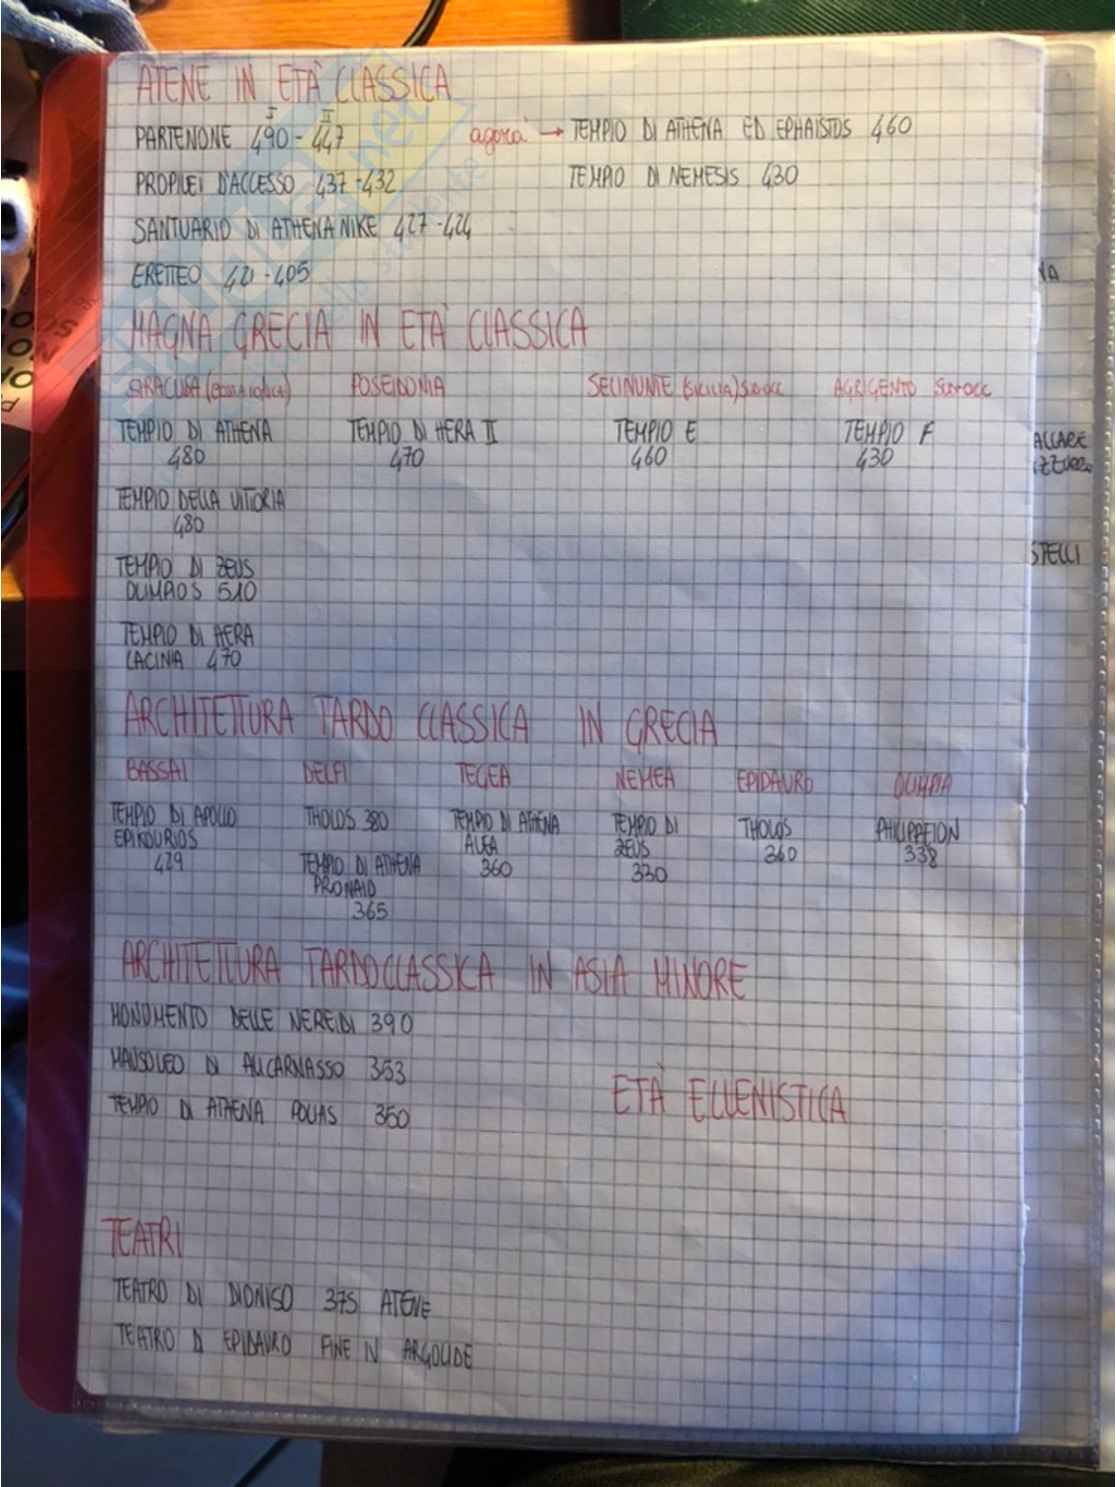 ATENE IN ETÀ CLASSICA
I II
PARTENONE 490 - 447 agorà → TEMPIO DI ATHENA ED EPHAISTOS 460
PROPILEI D'ACCESSO 437-432 TEMPIO DI NEMESIS 430
SANTUARIO DI ATHENA NIKE 427-424
ERETTEO 421-405
MAGNA GRECIA IN ETÀ CLASSICA
SIRACUSA POSEIDONIA SELINUNTE (SICILIA) Sudocc AGRIGENTO Sudocc
TEMPIO DI ATHENA TEMPIO DI HERA II TEMPIO E TEMPIO F
480 470 460 430
TEMPIO DELLA VITTORIA
480
TEMPIO DI ZEUS
OLIMPIOS 510
TEMPIO DI HERA
LACINIA 470
ARCHITETTURA TARDO CLASSICA IN GRECIA
BASSAI DELFI TEGEA NEMEA EPIDAURO OLIMPIA
TEMPIO DI APOLLO THOLOS 380 TEMPIO DI ATHENA TEMPIO DI THOLOS PHILIPPEION
EPIKOURIOS ALEA ZEUS 360 338
429 TEMPIO DI ATHENA 360 330
PRONAIO
365
ARCHITETTURA TARDOCLASSICA IN ASIA MINORE
MONUMENTO DELLE NEREIDI 390
MAUSOLEO DI ALICARNASSO 353
TEMPIO DI ATHENA POLIAS 350
ETÀ ELLENISTICA
TEATRI
TEATRO DI DIONISO 375 ATENE
TEATRO DI EPIDAURO FINE IV ARGOLIDE